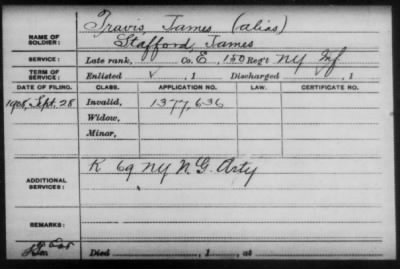 Travis, James (alias)
NAME OF SOLDIER: Stafford, James
SERVICE: Late rank, Co. E, 150 Reg't NY Inf
TERM OF SERVICE: Enlisted ✓, 1 Discharged , 1
DATE OF FILING. CLASS. APPLICATION NO. LAW. CERTIFICATE NO.
1908, Sept. 28 Invalid, 1377,636
Widow,
Minor,
ADDITIONAL SERVICES: K 69 NY N.G. Arty
REMARKS:
Died , 1 , at